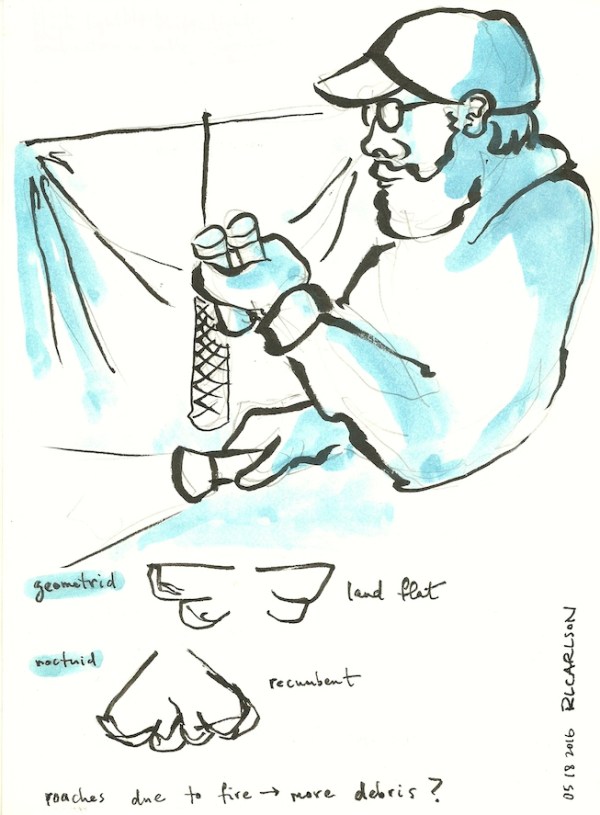 geometrid land flat
noctuid recumbent
roaches due to fire → more debris?
05 18 2016 RLCARLSON